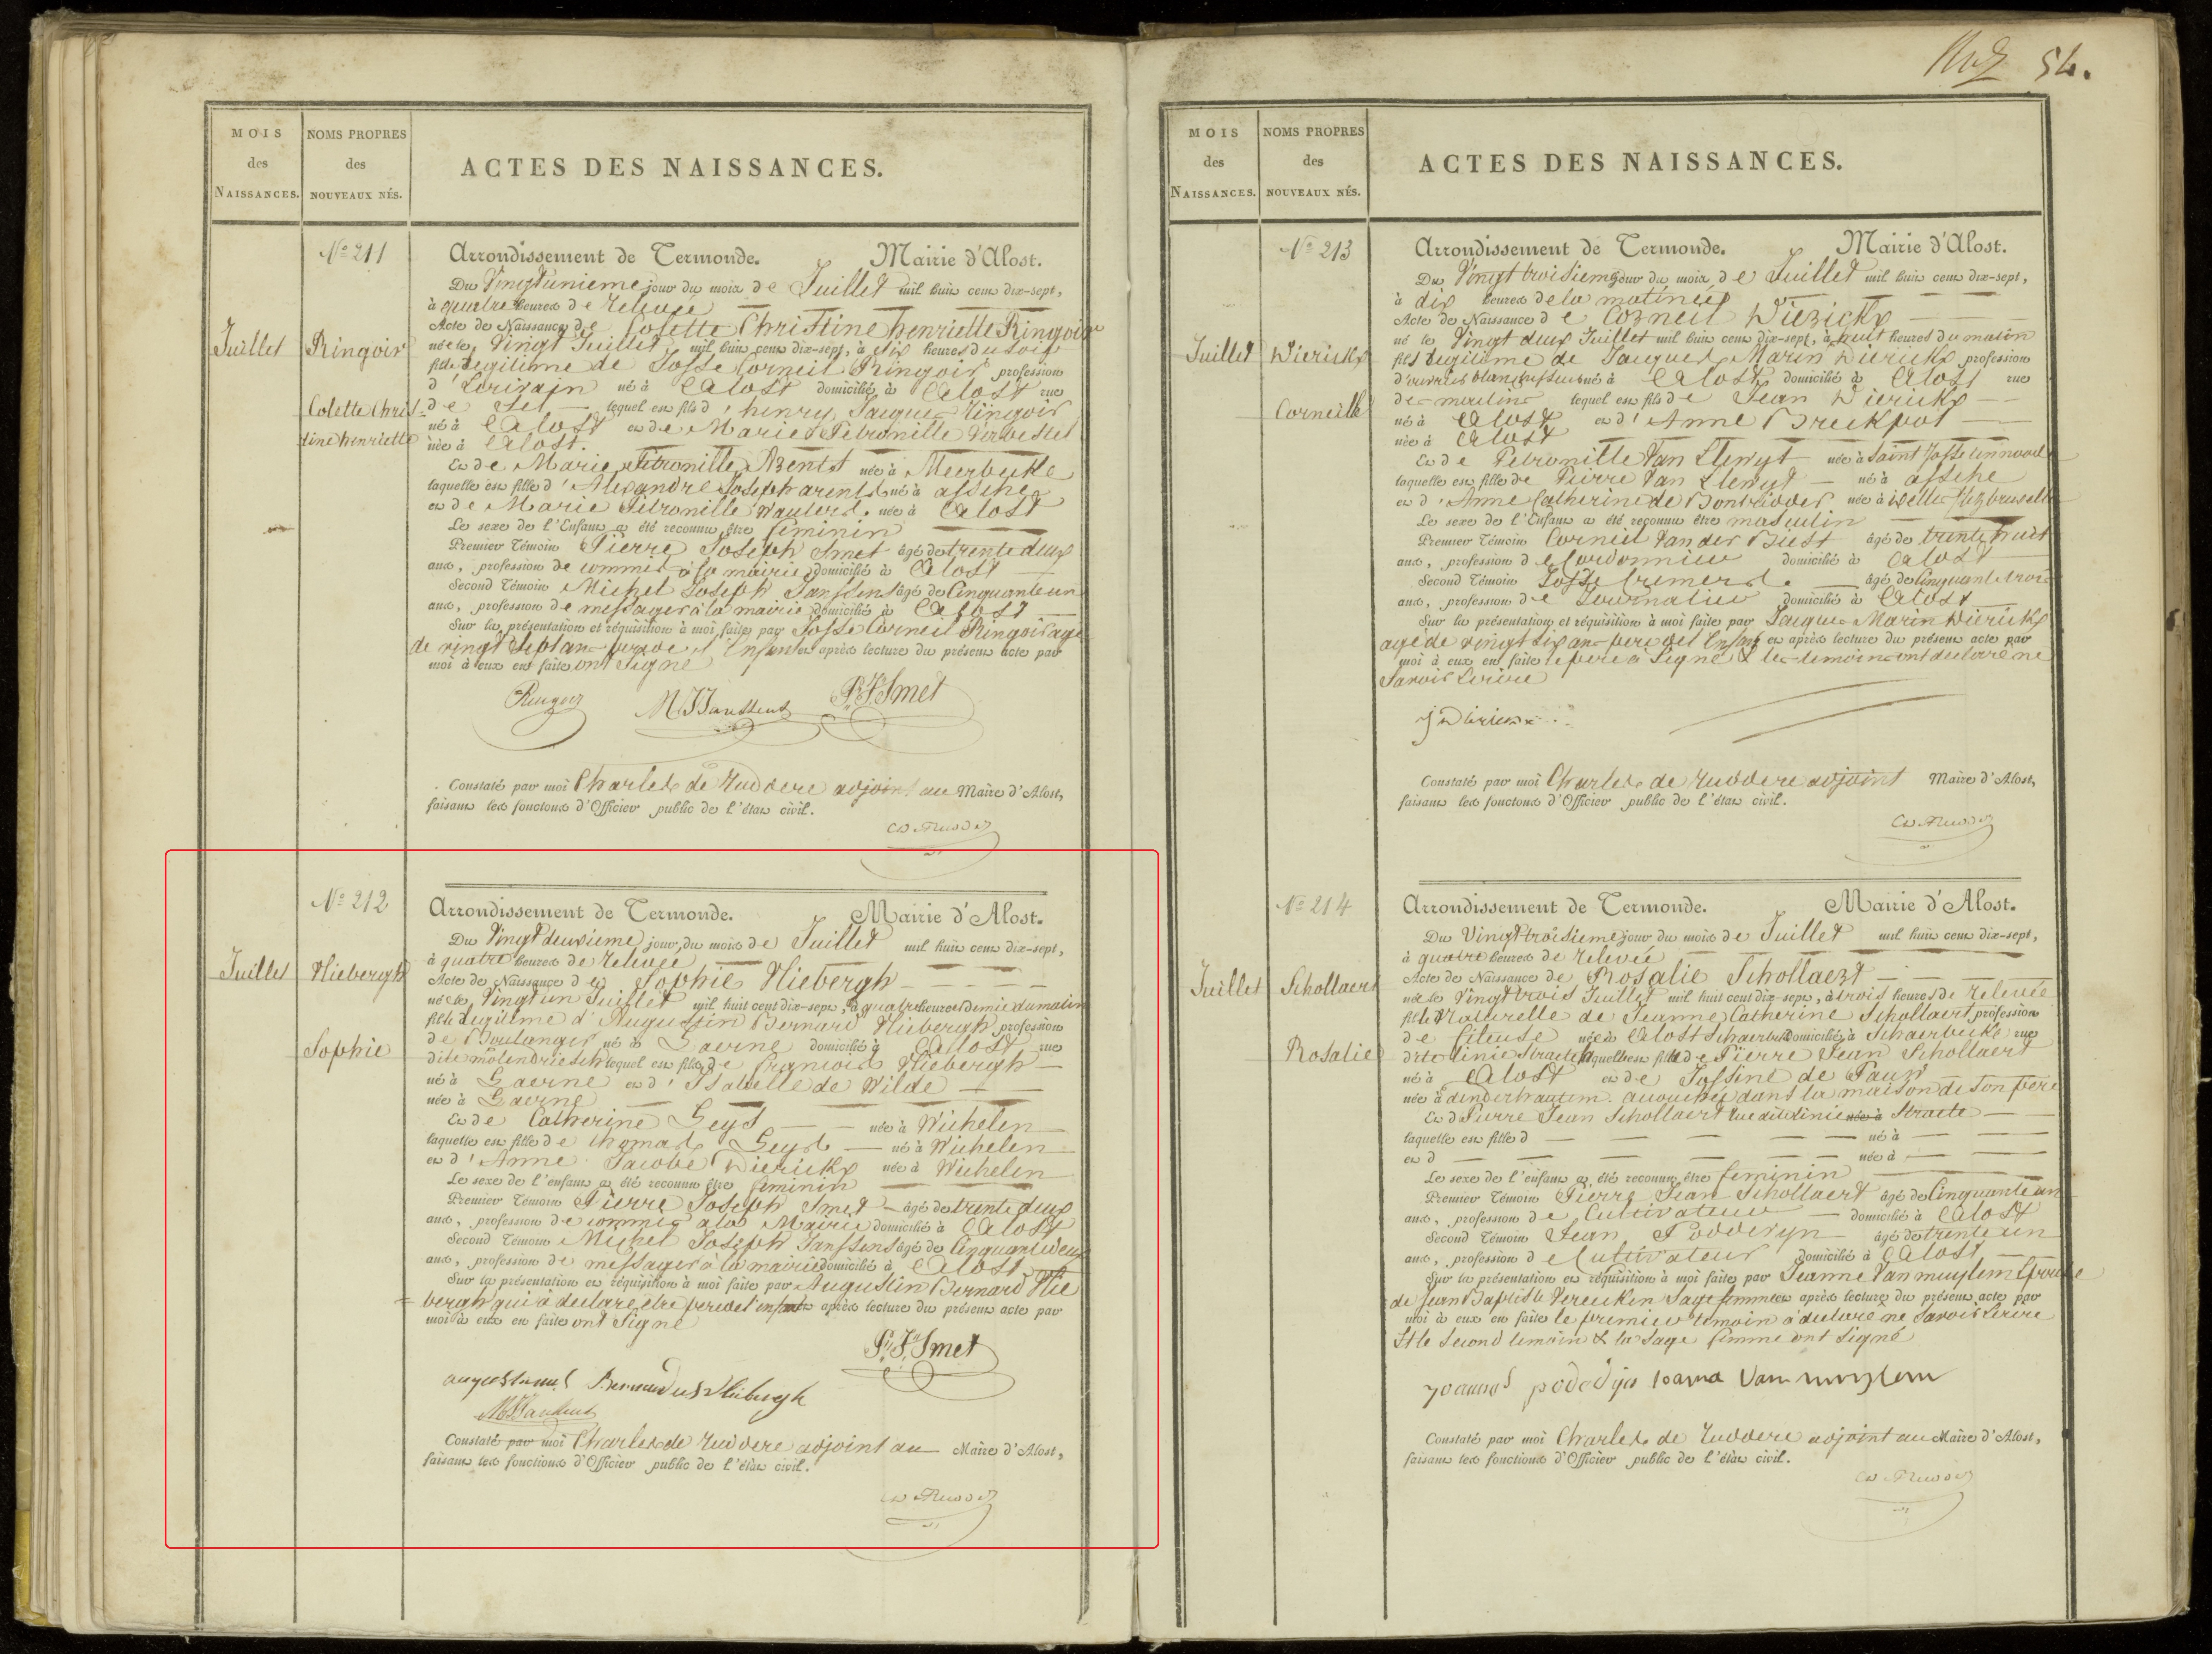 54.
MOIS
des
NAISSANCES.
NOMS PROPRES
des
NOUVEAUX NÉS.
ACTES DES NAISSANCES.
Juillet
Ringoir
Colette Chris-
tine henriette
No 211
Arrondissement de Termonde. Mairie d'Alost.
Du Vingtunieme jour du mois de Juillet mil huit cent dix-sept,
à quatre heures de relevée
Acte de Naissance de Colette Christine henriette Ringoir
née le Vingt Juillet mil huit cent dix-sept, à dix heures du soir
fille legitime de Josse Corneil Ringoir profession
d'Ecrivain né à Alost domicilié à Alost rue
de Sel lequel est fils d'henry Jacques Ringoir
né à Alost et de Marie Petronille Verbestel
née à Alost.
Et de Marie Petronille Arents née à Meerbeke
laquelle est fille d'Alexandre Joseph arents né à assche
et de Marie Petronille Wauters née à Alost
Le sexe de l'Enfant a été reconnu être feminin
Premier Témoin Pierre Joseph Smet âgé de trente deux
ans, profession de commis à la mairie domicilié à Alost
Second Témoin Michel Joseph Janssens âgé de Cinquante un
ans, profession de messager à la mairie domicilié à Alost
Sur la présentation et réquisition à moi faite par Josse Corneil Ringoir agé
de vingt sept ans pere de l'Enfant et après lecture du présent acte par
moi à eux en faite ont Signé
Ringoir M J Janssens P. J. Smet
Constaté par moi Charles de Ruddere adjoint au Maire d'Alost,
faisant les fonctions d'Officier public de l'état civil.
Juillet
Hiebergh
Sophie
No 212
Arrondissement de Termonde. Mairie d'Alost.
Du Vingt deuxieme jour du mois de Juillet mil huit cent dix-sept,
à quatre heures de relevée
Acte de Naissance de Sophie Hiebergh
née le Vingt un Juillet mil huit cent dix-sept, à quatre heures et demie du matin
fille legitime d'Augustin Bernard Hiebergh profession
de Boulanger né à Gavrne domicilié à Alost rue
dite molendriesch lequel est fils de François Hiebergh
né à Gavrne et d'Isabelle de Wilde
née à Gavrne
Et de Catherine Geys née à Wichelen
laquelle est fille de thomas Geys né à Wichelen
et d'Anne Jacobe Wierickx née à Wichelen
Le sexe de l'enfant a été reconnu être feminin
Premier Témoin Pierre Joseph Smet âgé de trente deux
ans, profession de commis à la Mairie domicilié à Alost
Second Témoin Michel Joseph Janssens âgé de Cinquante deux
ans, profession de messager à la mairie domicilié à Alost
Sur la présentation et réquisition à moi faite par Augustin Bernard Hie
bergh qui à declaré etre pere de l'enfant et après lecture du présent acte par
moi à eux en faite ont Signé
P. J. Smet
augustinus Bernardus Hiebergh
M J Janssens
Constaté par moi Charles de Ruddere adjoint au Maire d'Alost,
faisant les fonctions d'Officier public de l'état civil.
MOIS
des
NAISSANCES.
NOMS PROPRES
des
NOUVEAUX NÉS.
ACTES DES NAISSANCES.
Juillet
Wierickx
Corneille
No 213
Arrondissement de Termonde. Mairie d'Alost.
Du Vingt troisieme jour du mois de Juillet mil huit cent dix-sept,
à dix heures de la matinée
Acte de Naissance de Corneil Wierickx
né le Vingt deux Juillet mil huit cent dix-sept, à huit heures du matin
fils legitime de Jacques Marin Wierickx profession
d'ouvrier blanchisseur né à Alost domicilié à Alost rue
de moulin lequel est fils de Jean Wierickx
né à Alost et d'Anne Breckpot
née à Alost
Et de Petronille Van Elewyt née à Saint Josse tennoode
laquelle est fille de Pierre Van Elewyt né à assche
et d'Anne Catherine de Bontridder née à ixelles lez bruxelles
Le sexe de l'Enfant a été reconnu être masculin
Premier Témoin Corneil Van der Biest âgé de trente huit
ans, profession de Cordonnier domicilié à Alost
Second Témoin Josse bremers âgé de Cinquante trois
ans, profession de Journalier domicilié à Alost
Sur la présentation et réquisition à moi faite par Jacques Marin Wierickx
agé de vingt six ans pere de l'Enfant et après lecture du présent acte par
moi à eux en faite le pere a Signé & les temoins ont declaré ne
Savoir Ecrire
Constaté par moi Charles de Ruddere adjoint Maire d'Alost,
faisant les fonctions d'Officier public de l'état civil.
Juillet
Schollaert
Rosalie
No 214
Arrondissement de Termonde. Mairie d'Alost.
Du Vingt troisieme jour du mois de Juillet mil huit cent dix-sept,
à quatre heures de relevée
Acte de Naissance de Rosalie Schollaert
née le Vingt trois Juillet mil huit cent dix-sept, à trois heures de relevée
fille Naturelle de Jeanne Catherine Schollaert profession
de fileuse née à Alost Schaerbeke domiciliée à Schaerbeke rue
dite linie Straete laquelle est fille de Pierre Jean Schollaert
né à Alost et de Jossine de Pauw
née à denderhautem. accouchée dans la maison de Son pere
Et d Pierre Jean Schollaert rue dite linie née à Straete
laquelle est fille d né à
et d née à
Le sexe de l'enfant a été reconnu être feminin
Premier Témoin Pierre Jean Schollaert âgé de Cinquante un
ans, profession de Cultivateur domicilié à Alost
Second Témoin Jean Podevyn âgé de trente un
ans, profession de Cultivateur domicilié à Alost
Sur la présentation et réquisition à moi faite par Jeanne Van muylem Epouse
de Jean Baptiste Vereecken Sage femme et après lecture du présent acte par
moi à eux en faite le premier temoin à declaré ne Savoir Ecrire
Et le Second temoin & la Sage femme ont Signé
joannes podevijn Ioanna Van muylem
Constaté par moi Charles de Ruddere adjoint au Maire d'Alost,
faisant les fonctions d'Officier public de l'état civil.